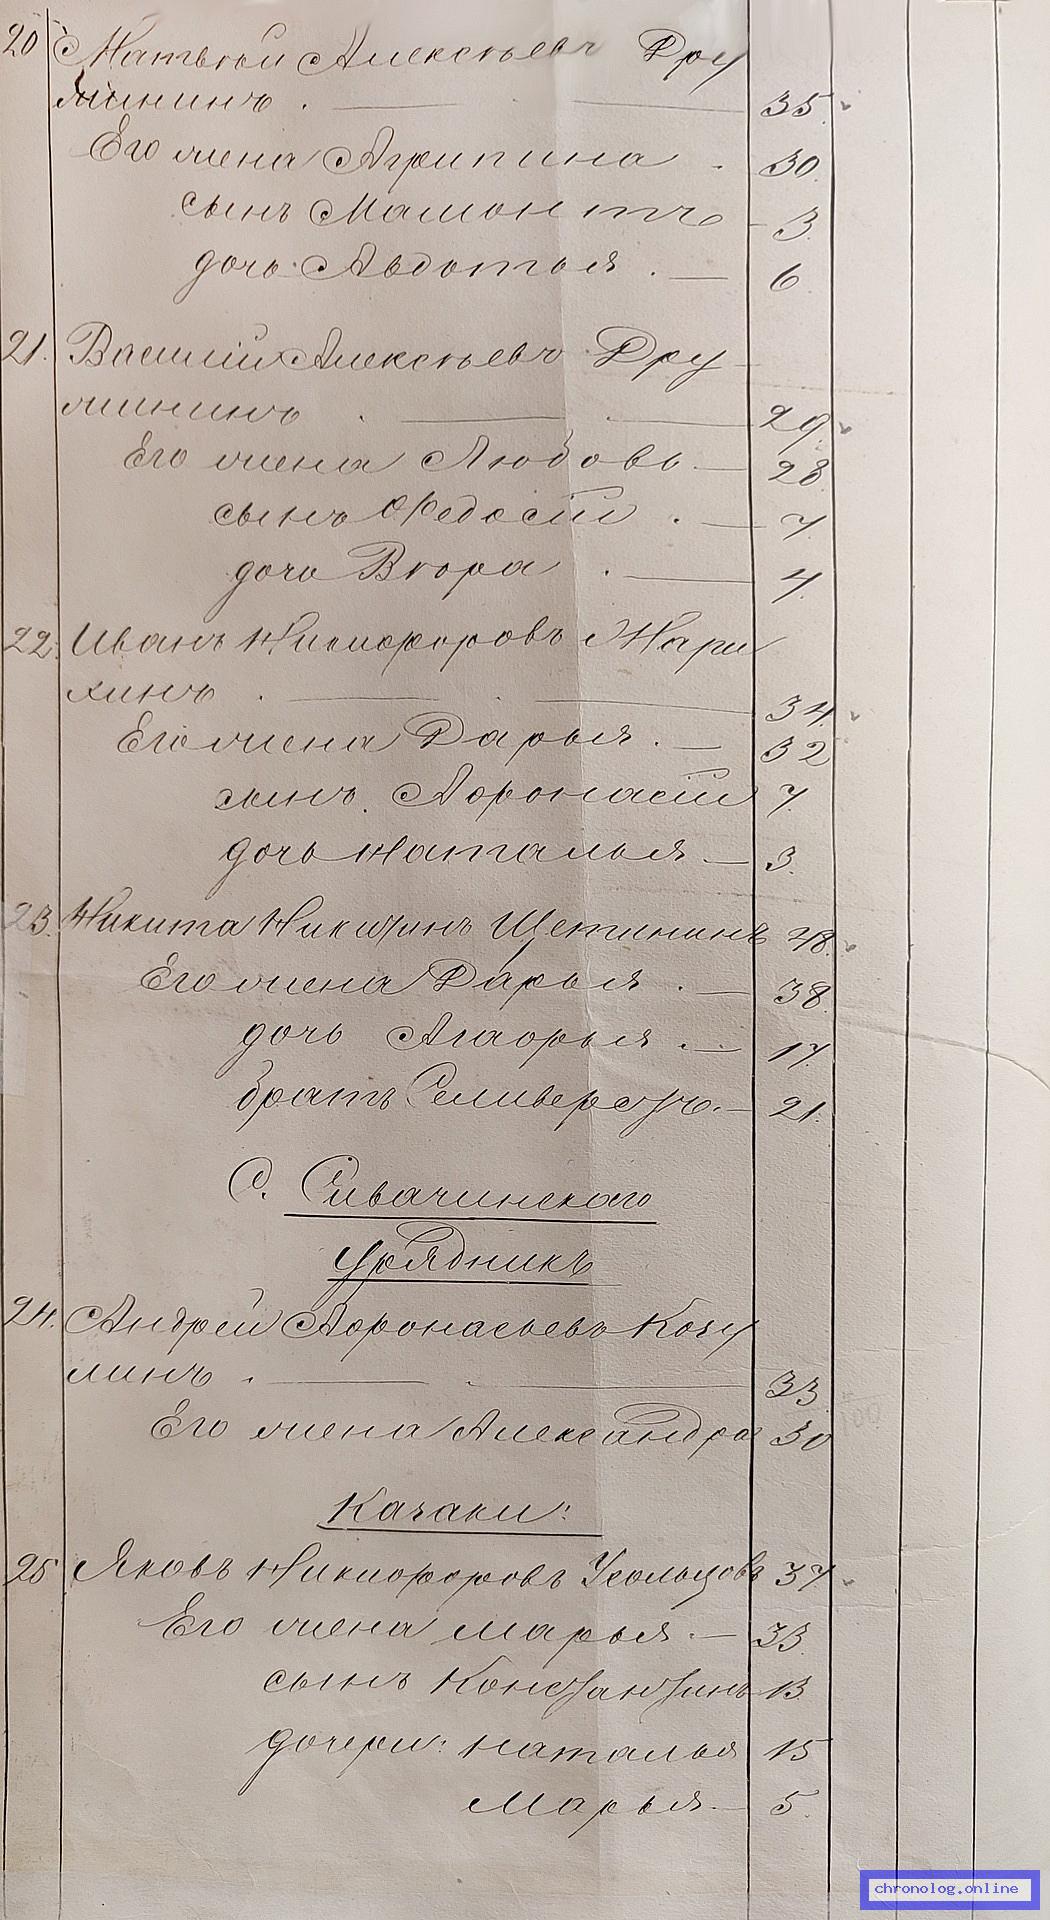 20 Матвѣй Алексѣевъ Дру
жининъ . 35.
Его жена Агрипина . 30.
сынъ Мамонтъ 3.
дочь Авдотья . 6.
21. Василій Алексѣевъ Дру
жининъ . 29.
Его жена Любовь 28
сынъ Ѳедосій . 7.
дочь Вѣра . 4.
22. Иванъ Никифоровъ Нари
кинъ . 34.
Его жена Дарья . 32
сынъ Афонасій 7.
дочь Наталья 3.
23. Никита Никитинъ Щетининъ 48.
Его жена Дарья . 38
дочь Агафья . 17.
братъ Селиверстъ. 21.
С. Сивачинскаго
Урядникъ
24. Андрей Афонасьевъ Козу
линъ . 33
Его жена Александра 30
Казаки:
25 Яковъ Никифоровъ Усольцовъ 37
Его жена Марья . 33
сынъ Константинъ 13
дочери: Наталья 15
Марья 5.
chronolog.online